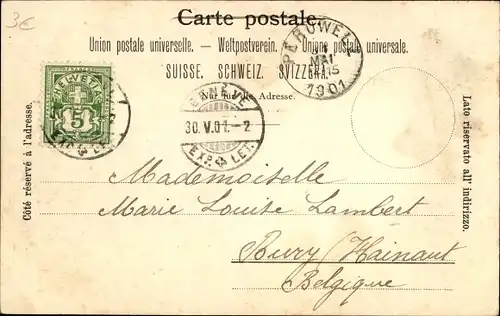 3€
Carte postale.
Union postale universelle. — Weltpostverein. — Unione postale universale.
SUISSE. SCHWEIZ. SVIZZERA.
Adresse.
PERUWELZ
MAI
15
1901
HELVETIA
5
GENÈVE
30.V.01.-2
EXP. LET.
Côté réservé à l'adresse.
Lato riservato all' indirizzo.
Mademoiselle
Marie Louise Lambert
Bury / Hainaut
Belgique